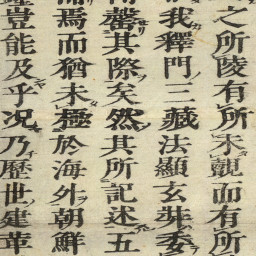 之所陵有所未覩而有所
我釋門三藏法顯玄奘委
罄其際矣然其所記述五
焉而猶未極於海外朝鮮
豈能及乎况乃歷世建革